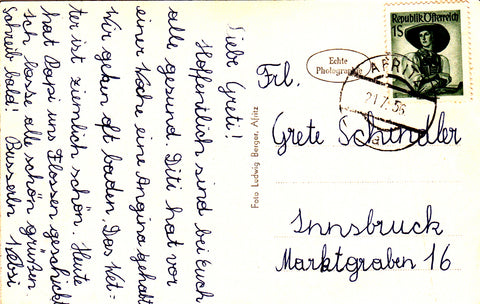 Liebe Greti!
Hoffentlich sind bei Euch
alle gesund. Diti hat vor
einer Woche eine Angina gehabt
Wir gehen oft baden. Das Wet=
ter ist ziemlich schön. Heute
hat Papi uns Flossen geschickt
Ich lasse alle schön grüßen.
Schreib bald! Busserln
Foto Ludwig Berger, Afritz
Echte
Photographie
Republik Österreich
1S
AFRITZ
21.7.56
a
Frl.
Grete Schindler
Innsbruck
Marktgraben 16